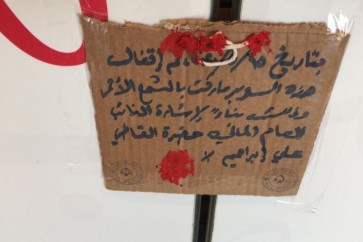 بتاريخ تم إقفال
هذه السوبر ماركت بالشمع الأحمر
وذلك بناءً لإشارة النائب
العام المالي حضرة القاضي
علي إبراهيم